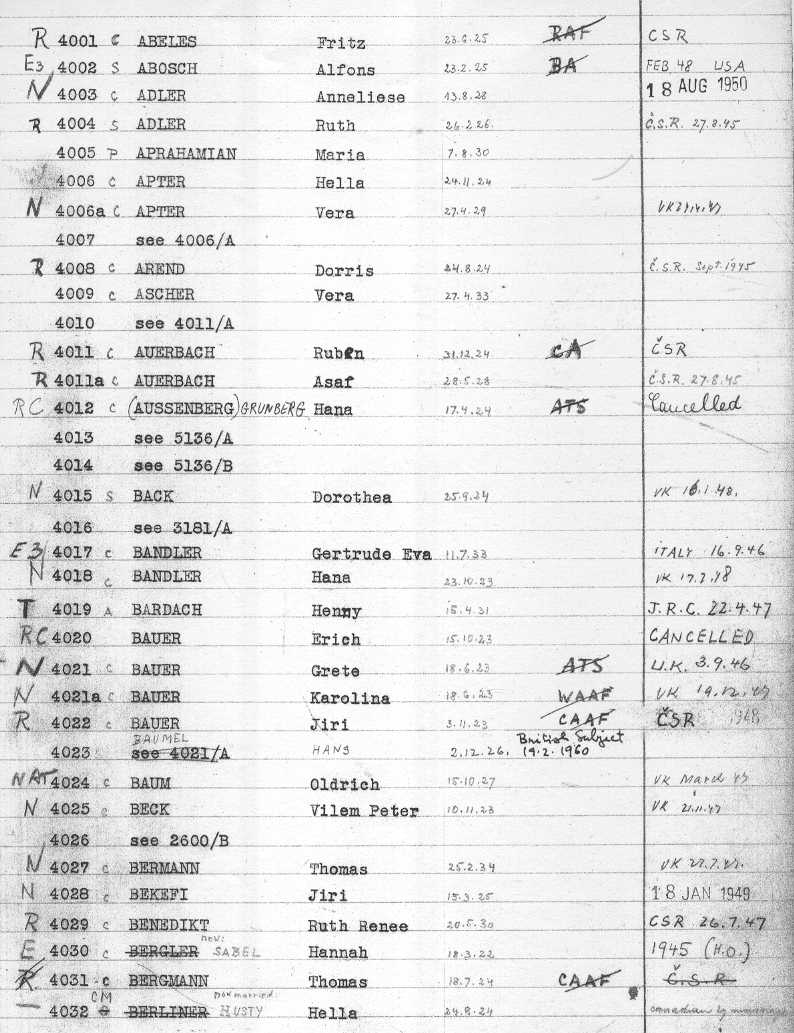 R 4001 C ABELES Fritz 23.6.25 RAF CSR
E3 4002 S ABOSCH Alfons 23.2.25 BA FEB 48 USA
N 4003 C ADLER Anneliese 13.8.28 18 AUG 1950
R 4004 S ADLER Ruth 26.2.26. Č.S.R. 27.8.45
4005 P APRAHAMIAN Maria 7.8.30
4006 C APTER Hella 24.11.24
N 4006a C APTER Vera 27.4.29 VK
4007 see 4006/A
R 4008 C AREND Dorris 24.8.24 Č.S.R. Sept. 1945
4009 C ASCHER Vera 27.4.33
4010 see 4011/A
R 4011 C AUERBACH Ruben 31.12.24 CA ČSR
R 4011a C AUERBACH Asaf 28.5.28 Č.S.R. 27.8.45
RC 4012 C (AUSSENBERG) GRUNBERG Hana 17.4.24 ATS Cancelled
4013 see 5136/A
4014 see 5136/B
N 4015 S BACK Dorothea 25.9.24 VK 16.1.48.
4016 see 3181/A
E3 4017 C BANDLER Gertrude Eva 11.7.33 ITALY 16.9.46
N 4018 C BANDLER Hana 23.10.23 VK
T 4019 A BARDACH Henny 15.4.31 J.R.C. 22.4.47
RC 4020 BAUER Erich 15.10.23 CANCELLED
N 4021 C BAUER Grete 18.6.23 ATS U.K. 3.9.46
N 4021a C BAUER Karolina 18.6.23 WAAF VK 19.12.47
R 4022 C BAUER Jiri 3.11.23 CAAF ČSR 1948
BAUMEL British Subject
4023 see 4021/A HANS 2.12.26. 19.2.1960
NAT 4024 C BAUM Oldrich 15.10.27 VK March 47
N 4025 C BECK Vilem Peter 10.11.23 VK 21.11.47
4026 see 2600/B
N 4027 C BERMANN Thomas 25.2.34 VK 27.7.47.
N 4028 C BEKEFI Jiri 15.3.25 18 JAN 1949
R 4029 C BENEDIKT Ruth Renee 20.5.30 CSR 26.7.47
now:
E 4030 C BERGLER SABEL Hannah 18.3.22 1945 (H.O.)
R 4031 C BERGMANN Thomas 18.7.24 CAAF Č.S.R
CM now married
4032 BERLINER HUSTY Hella 24.8.24 canadian by